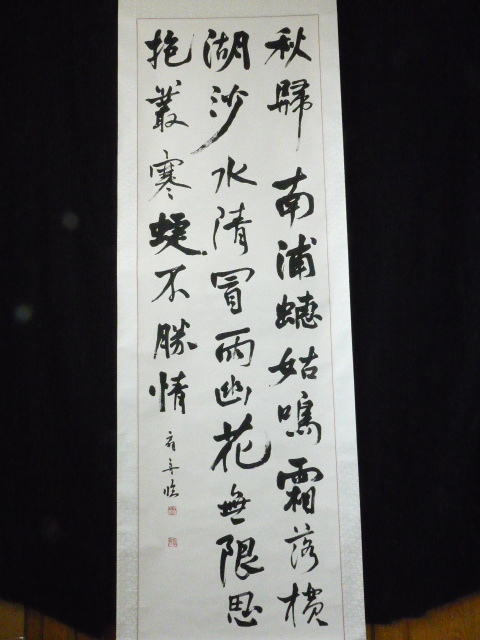 秋歸南浦蟪蛄鳴霜落橫
湖沙水清冒雨幽花無限思
抱叢寒蝶不勝情
臨